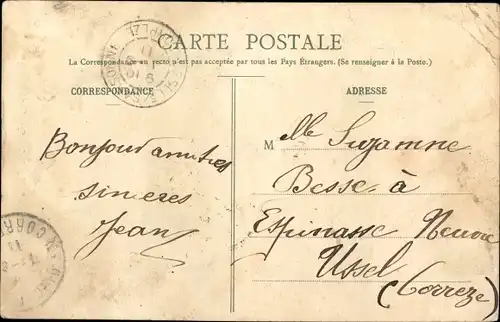 CARTE POSTALE
La Correspondance au recto n'est pas acceptée par tous les Pays Étrangers. (Se renseigner à la Poste.)
CORRESPONDANCE
Bonjour amitiés
sincères
Jean
ADRESSE
Melle Suzanne
Besse à
Espinasse Neuvic
Ussel
(Corrèze)